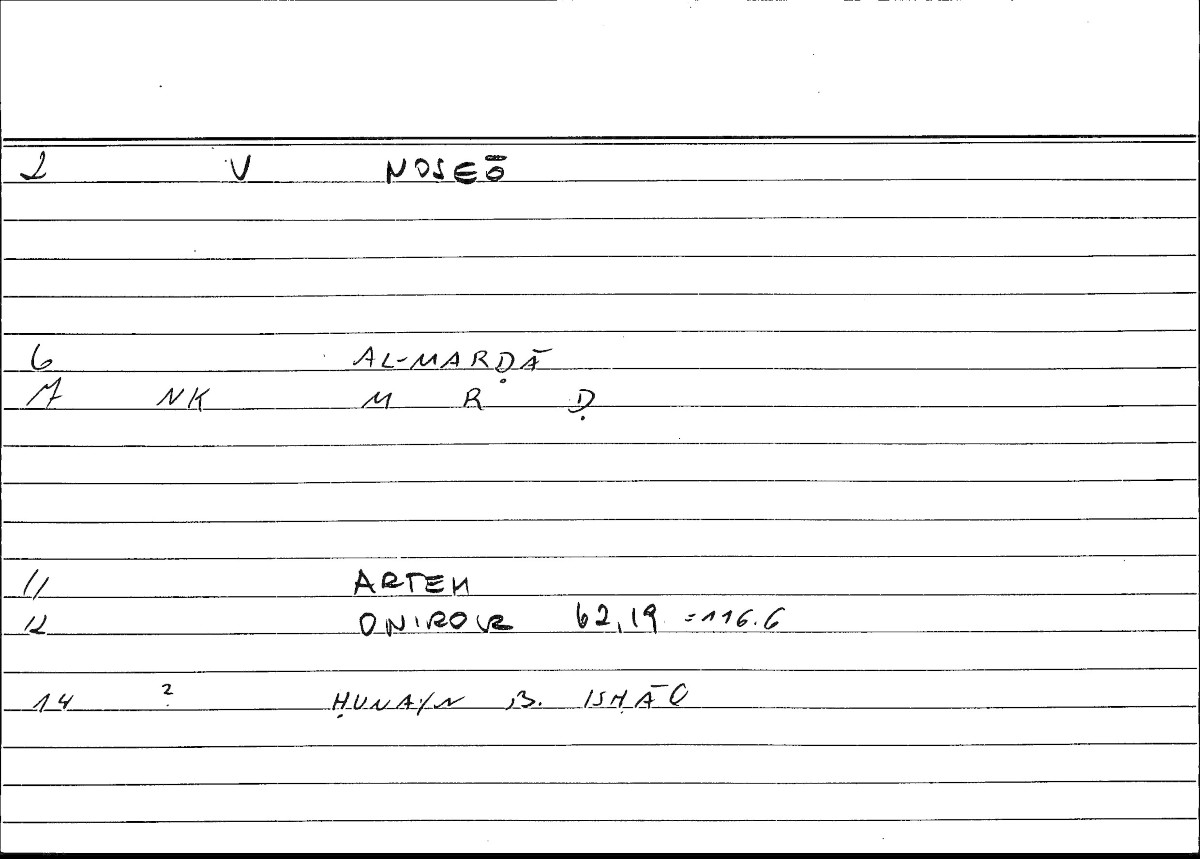 2 V NOSEŌ
6 AL-MARḌĀ
7 NK M R Ḍ
11 ARTEM
12 ONIROCR 62,19 =116.6
14 ? ḤUNAYN B. ISḤĀQ